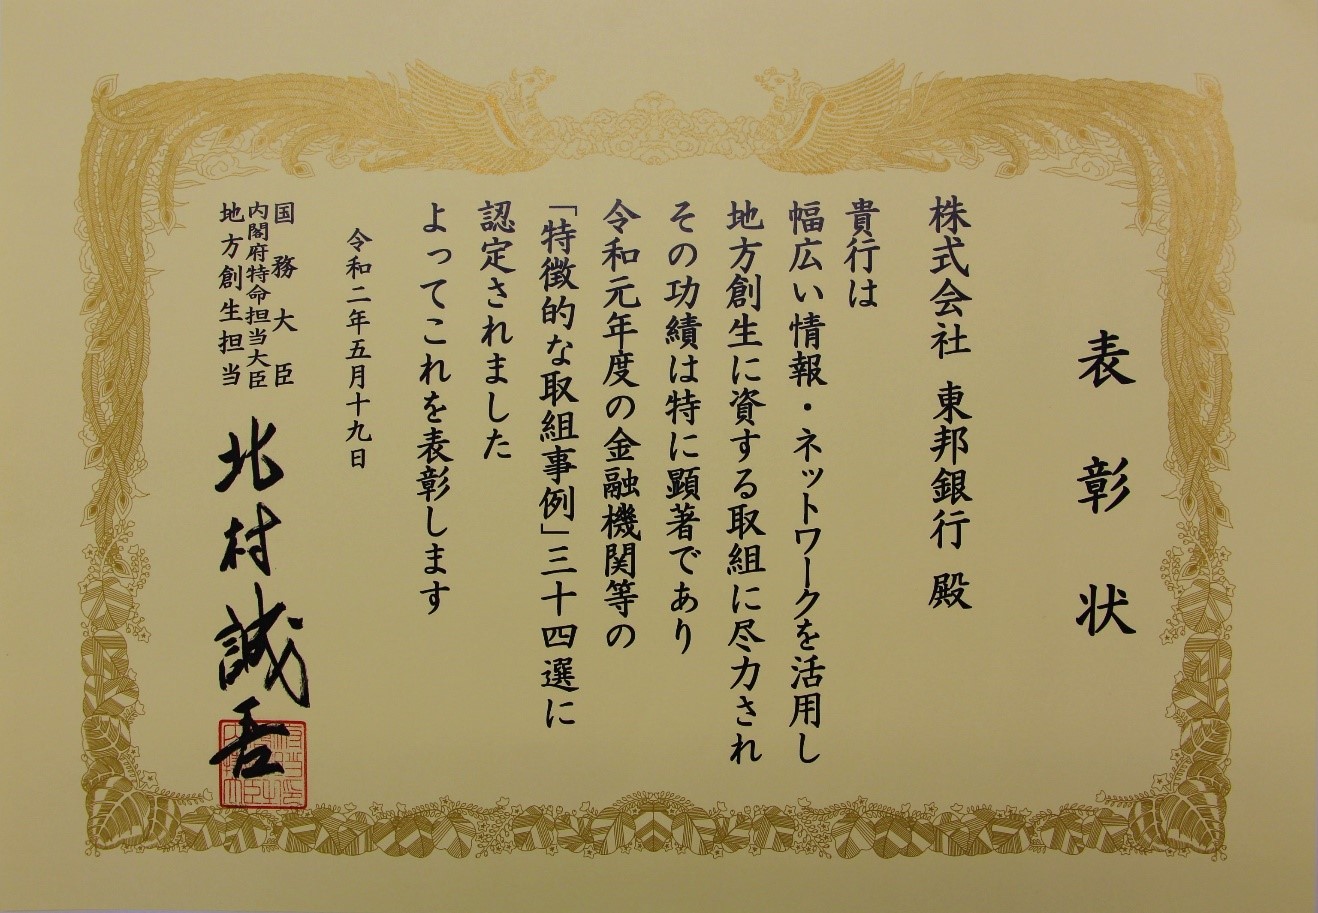 表彰状
株式会社 東邦銀行 殿
貴行は
幅広い情報・ネットワークを活用し
地方創生に資する取組に尽力され
その功績は特に顕著であり
令和元年度の金融機関等の
「特徴的な取組事例」三十四選に
認定されました
よってこれを表彰します
令和二年五月十九日
国務大臣
内閣府特命担当大臣
地方創生担当
北村誠吾